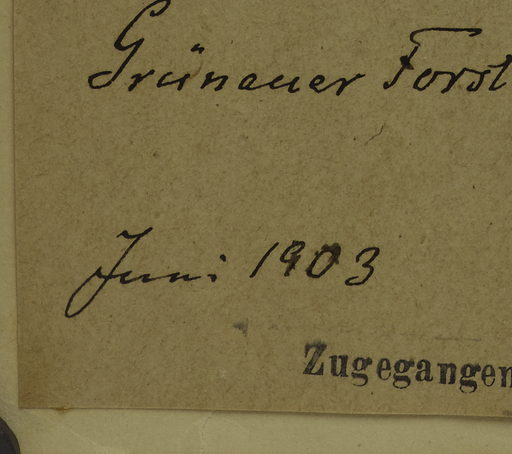 Grünauer Forst
Juni 1903
Zugegangen